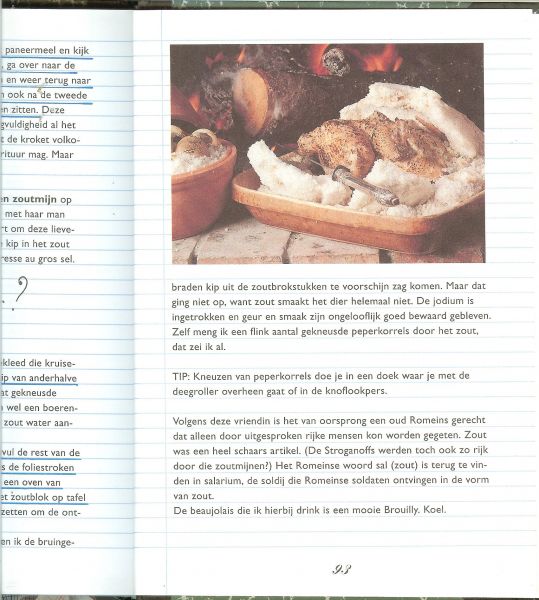 paneermeel en kijk
, ga over naar de
n en weer terug naar
n ook na de tweede
en zitten. Deze
gvuldigheid al het
t de kroket volko-
rituur mag. Maar
en zoutmijn op
met haar man
rt om deze lieve-
e kip in het zout
resse au gros sel.
..?
kleed die kruise-
ip van anderhalve
at gekneusde
n wel een boeren-
zout water aan-
vul de rest van de
s de foliestroken
een oven van
et zoutblok op tafel
zetten om de ont-
en ik de bruinge-
braden kip uit de zoutbrokstukken te voorschijn zag komen. Maar dat
ging niet op, want zout smaakt het dier helemaal niet. De jodium is
ingetrokken en geur en smaak zijn ongelooflijk goed bewaard gebleven.
Zelf meng ik een flink aantal gekneusde peperkorrels door het zout,
dat zei ik al.
TIP: Kneuzen van peperkorrels doe je in een doek waar je met de
deegroller overheen gaat of in de knoflookpers.
Volgens deze vriendin is het van oorsprong een oud Romeins gerecht
dat alleen door uitgesproken rijke mensen kon worden gegeten. Zout
was een heel schaars artikel. (De Stroganoffs werden toch ook zo rijk
door die zoutmijnen?) Het Romeinse woord sal (zout) is terug te vin-
den in salarium, de soldij die Romeinse soldaten ontvingen in de vorm
van zout.
De beaujolais die ik hierbij drink is een mooie Brouilly. Koel.
93